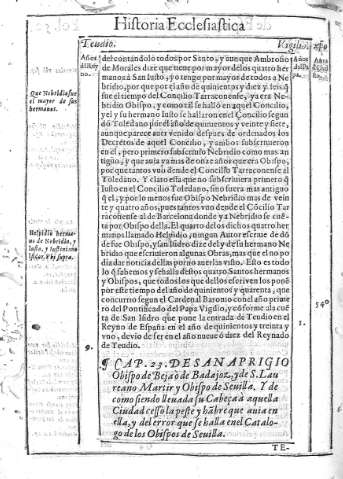 Historia Ecclesiastica
Teudio.
Vigilio.
Años
que Nebridio fue
el mayor de sus
hermanos.
del contãndolo todos por Santo, y aunque Ambrosio
de Morales dize que tiene por mayor de los quatro her
manos à San Iusto, yo tengo por mayor de todos a Ne
bridio, porque por el año de quinientos y diez y seis
fue el tiempo del Concilio Tarraconense, y a era Ne-
bridio Obispo, y como tal se hallò en aquel Concilio,
y el y su hermano Iusto se hallaron en el Concilio segun
dò Toledano por el año de quinientos y veinte y siete,
aunque parece auer venido despues de ordenados los
Decretos de aquel Concilio, y ambos subscriuieron
en el, pero primero subscriuio Nebridio como mas an
tiguo, y que auia ya mas de onze años que era Obispo,
por que tantos vuo desde el Concilio Tarraconense al
Toledano. Y claro està que no subscriuiera primero q̃
Iusto en el Concilio Toledano, sino fuera mas antiguo
q̃ el, y por lo menos fue Obispo Nebridio mas de vein
te y quatro años, pues tantos vuo desde el Cõcilio Tar
raconense al de Barcelona donde ya Nebridio se cuẽ-
ta por Obispo della. El quarto de los dichos quatro her
manos llamado Helpidio, ningun Autor escriue de dõ
de fue Obispo, y san Isidro dize del y de su hermano Ne
bridio que escriuieron algunas Obras, mas que el no po
dia dar noticia dellas por no auerlas visto. Esto es todo lo
q̃ sabemos y se halla destos quatro Santos hermanos
y Obispos, que todos los que dellos escriuen los ponẽ
por este tiempo del año de quinientos y quarenta, que
concurrio segun el Cardenal Baronio con el año prime
ro del Pontificado del Papa Vigilio, y cõforme a la cuẽ
ta de San Isidro que pone la entrada de Teudio en el
Reyno de España en el año de quinientos y treinta y
vno, deuio de ser en el año nueue ò diez del Reynado
de Teudio.
Helpidio herma-
no de Nebridio, y
Iusto, y Iustiniano
9.
540
1.
¶ CAP. 23. DE SAN APRIGIO
Obispo de Beja ò de Badajoz, y de S. Lau
reano Martir y Obispo de Seuilla. Y de
como siendo lleuada su Cabeça à aquella
Ciudad cessò la peste y hãbre que auia en
ella, y del error que se halla en el Catalo-
go de los Obispos de Seuilla.
TE-